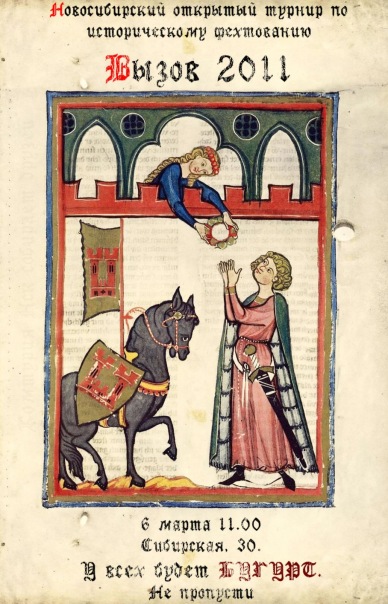 Новосибирский открытый турнир по
историческому фехтованию
Вызов 2011
6 марта 11.00
Сибирская. 30.
У всех будет БУГУРТ.
Не пропусти